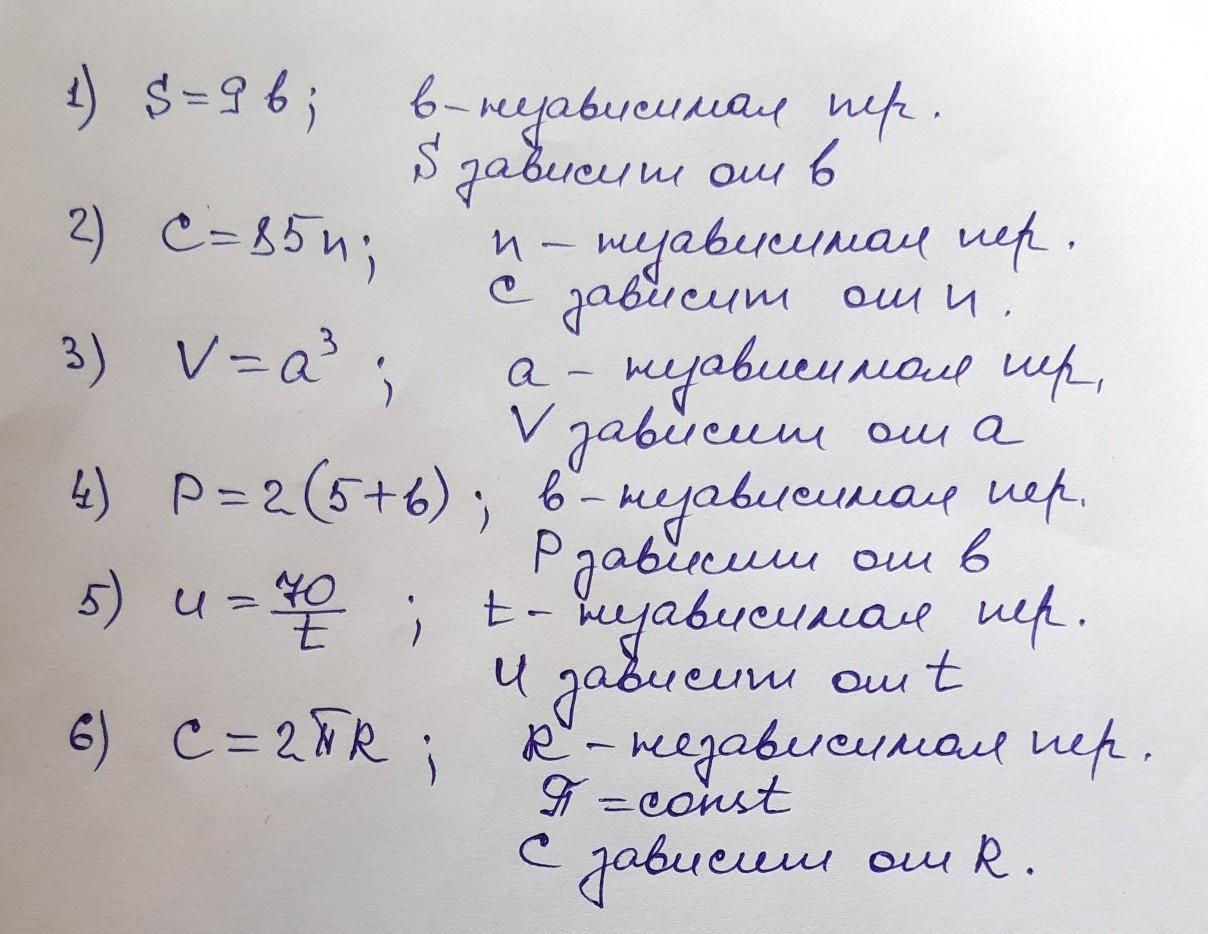 1) S = 9 b; b - независимая пер.
S зависит от b
2) C = 85 n; n - независимая пер.
C зависит от n.
3) V = a³; a - независимая пер.
V зависит от a
4) P = 2(5+b); b - независимая пер.
P зависит от b
5) u = 70/t; t - независимая пер.
u зависит от t
6) C = 2πR; R - независимая пер.
π = const
C зависит от R.